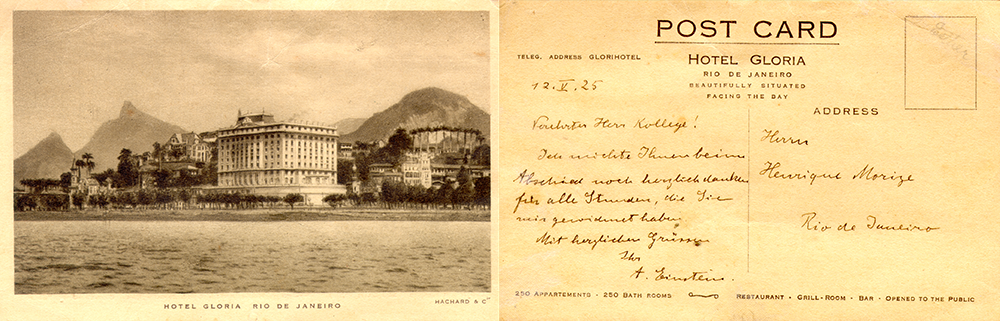 HOTEL GLORIA RIO DE JANEIRO
HACHARD & Cie
POST CARD
TELEG. ADDRESS GLORIHOTEL
HOTEL GLORIA
RIO DE JANEIRO
BEAUTIFULLY SITUATED
FACING THE BAY
12.V.25
Verehrter Herr Kollege!
Ich möchte Ihnen beim
Abschied noch herzlich danken
für alle Stunden, die Sie
mir gewidmet haben
Mit herzlichen Grüssen
Ihr
A. Einstein.
ADDRESS
Herrn
Henrique Morize
Rio de Janeiro
250 APPARTEMENTS - 250 BATH ROOMS
RESTAURANT - GRILL-ROOM - BAR - OPENED TO THE PUBLIC